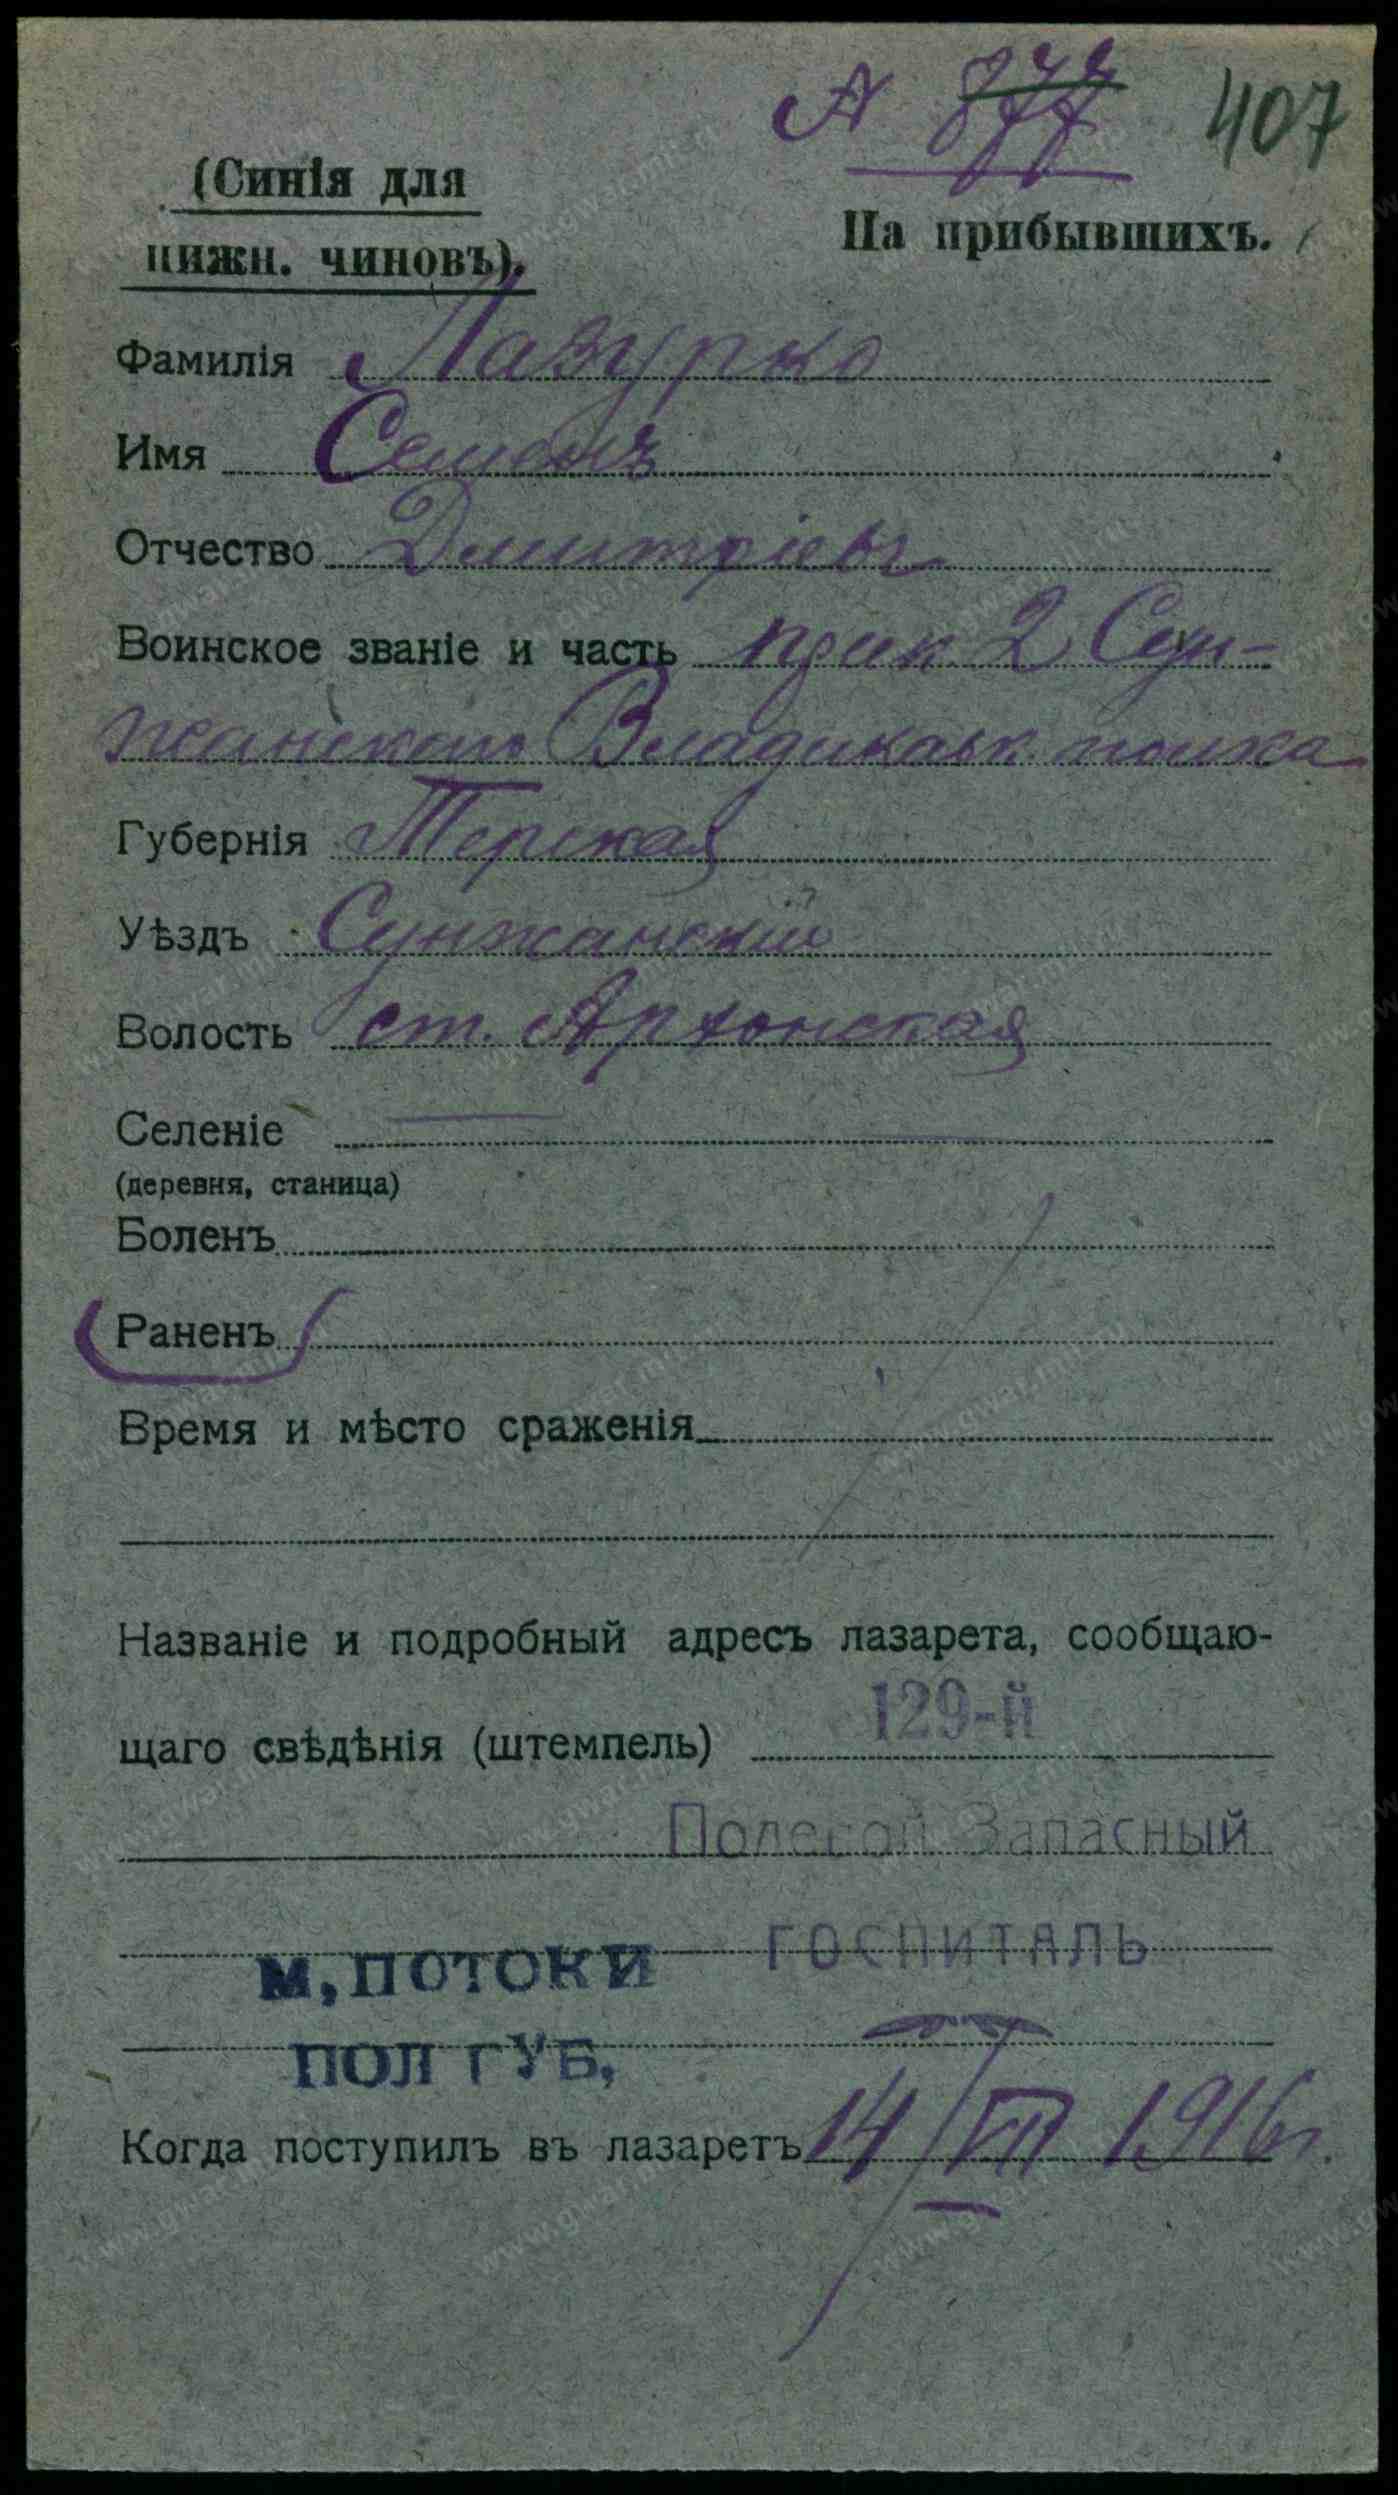 407
(Синія для
нижн. чиновъ).
На прибывшихъ.
Фамилія Лазурко
Имя Семенъ
Отчество Дмитріевъ
Воинское званіе и часть прик 2 Сун-
жанскаго Владикавк полка
Губернія Терская
Уѣздъ Сунжанскій
Волость ст. Архонская
Селеніе —
(деревня, станица)
Боленъ
Раненъ
Время и мѣсто сраженія
Названіе и подробный адресъ лазарета, сообщаю-
щаго свѣдѣнія (штемпель) 129-й
Полевой Запасный
ГОСПИТАЛЬ
м, ПОТОКИ
ПОЛ ГУБ,
Когда поступилъ въ лазаретъ 14/VII 1916 г.